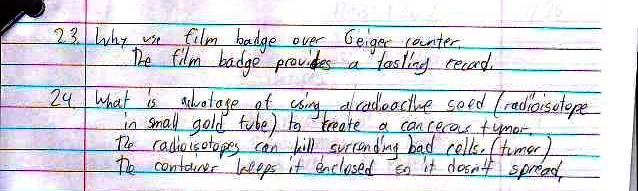 23. Why use film badge over Geiger counter.
The film badge provides a lasting record.
24. What is advatage of using a radioactive seed (radioisotope
in small gold tube) to treate a cancerous tumor.
The radioisotopes can kill surronding bad cells. (tumor)
The container keeps it enclosed so it dosn't spread.